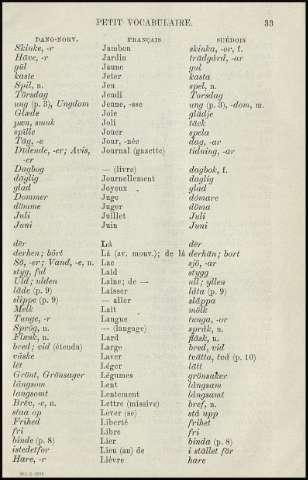 PETIT VOCABULAIRE. 33
DANO-NORV. FRANÇAIS SUÉDOIS
Skinke, -r Jambon skinka, -or, f.
Have, -r Jardin trädgård, -ar
gul Jaune gul
kaste Jeter kasta
Spil, n. Jeu spel, n.
Torsdag Jeudi Torsdag
ung (p. 3), Ungdom Jeune, -sse ung (p. 3), -dom, m.
Glæde Joie glädje
pæn, smuk Joli täck
spille Jouer spela
Dag, -e Jour, -née dag, -ar
Tidende, -er; Avis, Journal (gazette) tidning, -ar
-er
Dagbog — (livre) dagbok, f.
daglig Journellement daglig
glad Joyeux glad
Dommer Juge domare
dömme Juger döma
Juli Juillet Juli
Juni Juin Juni
dér Là där
derhen; bort Là (av. mouv.); de là derhän; bort
Sö, -er; Vand, -e, n. Lac sjö, -ar
styg, ful Laid stygg
Uld; ulden Laine; de — ull; yllen
lade (p. 9) Laisser låta (p. 9)
slippe (p. 9) — aller släppa
Melk Lait mölk
Tunge, -r Langue tunga, -or
Sprog, n. — (langage) språk, n.
Flæsk, n. Lard fläsk, n.
bred; vid (étendu) Large bred, vid
vaske Laver tvätta, två (p. 10)
let Léger lätt
Grönt, Grönsager Légumes grönsaker
langsom Lent långsam
langsomt Lentement långsamt
Brev, -e, n. Lettre (missive) bref, n.
staa op Lever (se) stå upp
Frihed Liberté frihet
fri Libre fri
binde (p. 8) Lier binda (p. 8)
istedetfor Lieu (au) de i stället för
Hare, -r Lièvre hare